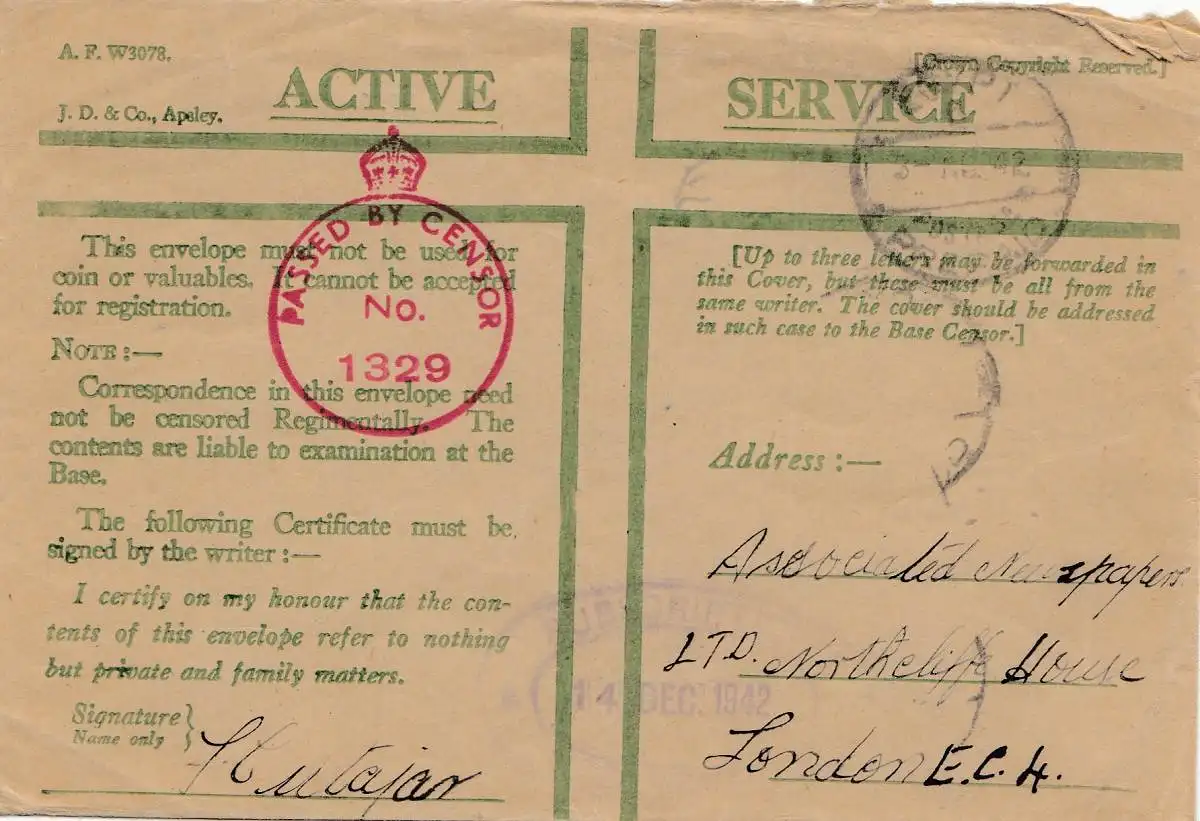 A. F. W3078.
[Crown Copyright Reserved.]
ACTIVE SERVICE
J. D. & Co., Apsley.
PASSED BY CENSOR
No.
1329
This envelope must not be used for
coin or valuables. It cannot be accepted
for registration.
NOTE :—
Correspondence in this envelope need
not be censored Regimentally. The
contents are liable to examination at the
Base.
The following Certificate must be
signed by the writer :—
I certify on my honour that the con-
tents of this envelope refer to nothing
but private and family matters.
Signature }
Name only
[Up to three letters may be forwarded in
this Cover, but these must be all from the
same writer. The cover should be addressed
in such case to the Base Censor.]
Address :—
Associated Newspapers
LTD. Northcliffe House
London E.C.4.
14 DEC. 1942